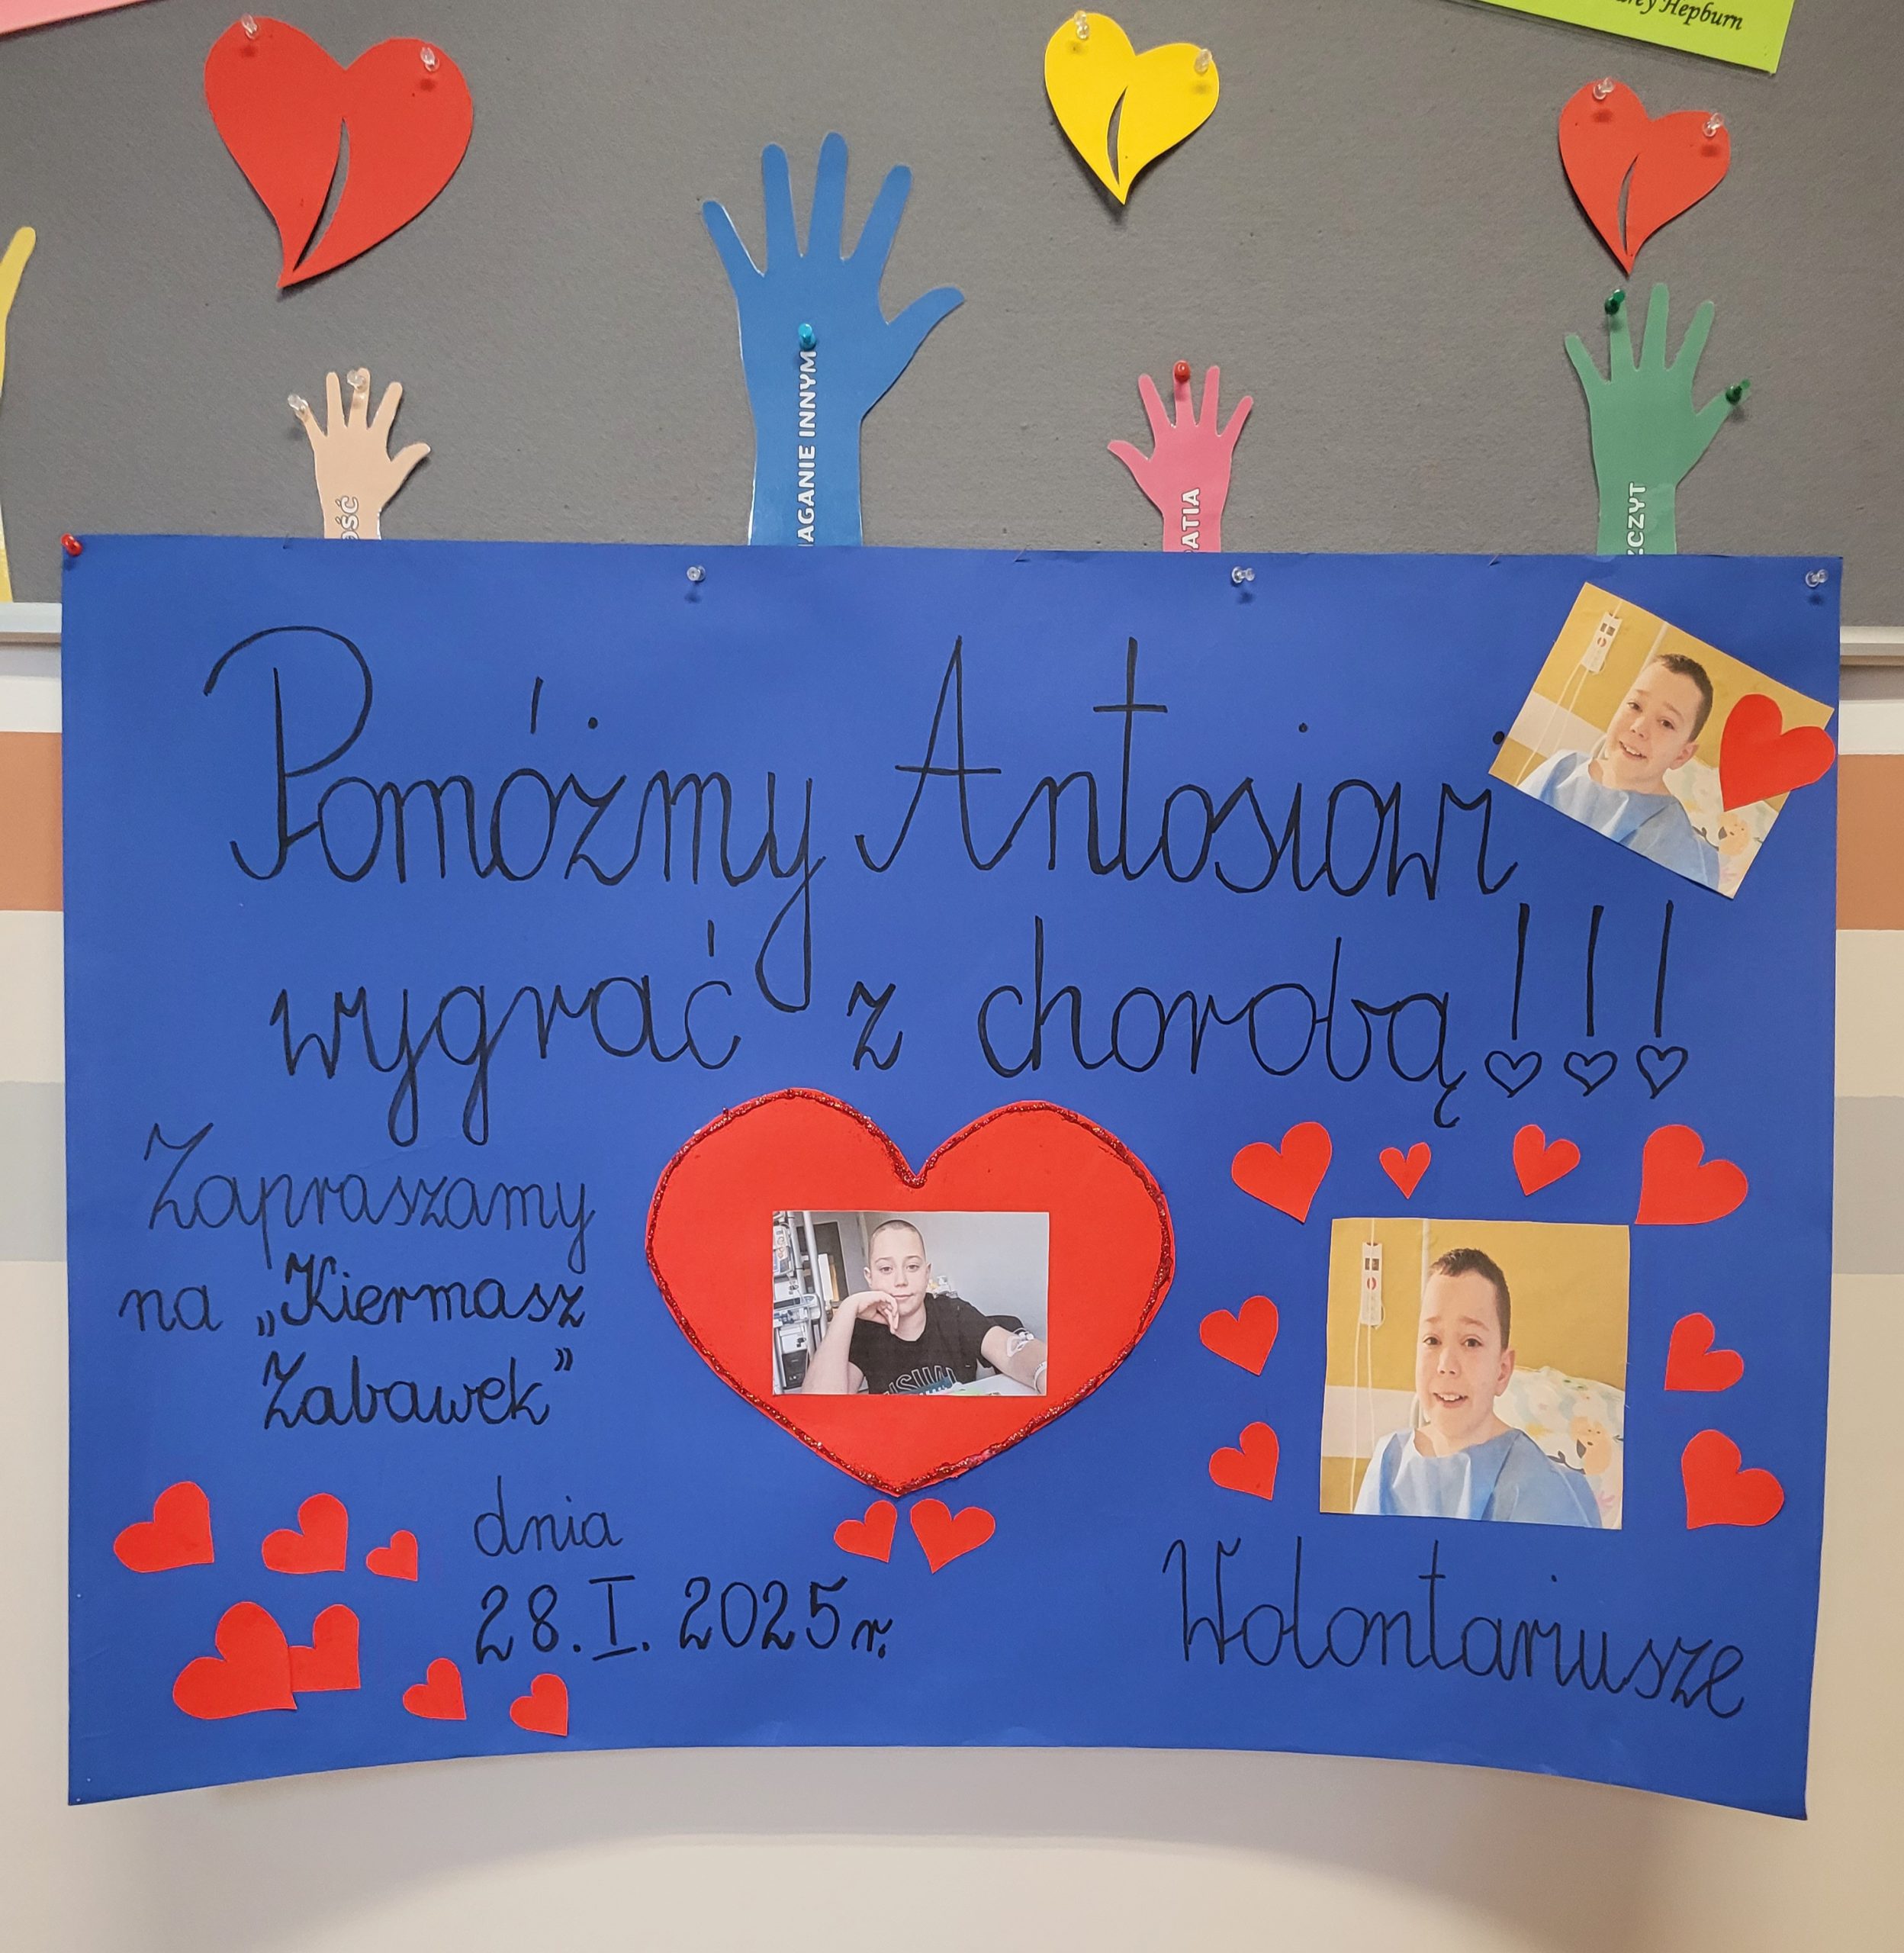 Hepburn
INNYM
Pomóżmy Antosiowi
wygrać z chorobą!!!
Zapraszamy
na „Kiermasz
Zabawek”
dnia
28.I.2025r.
Wolontariusze